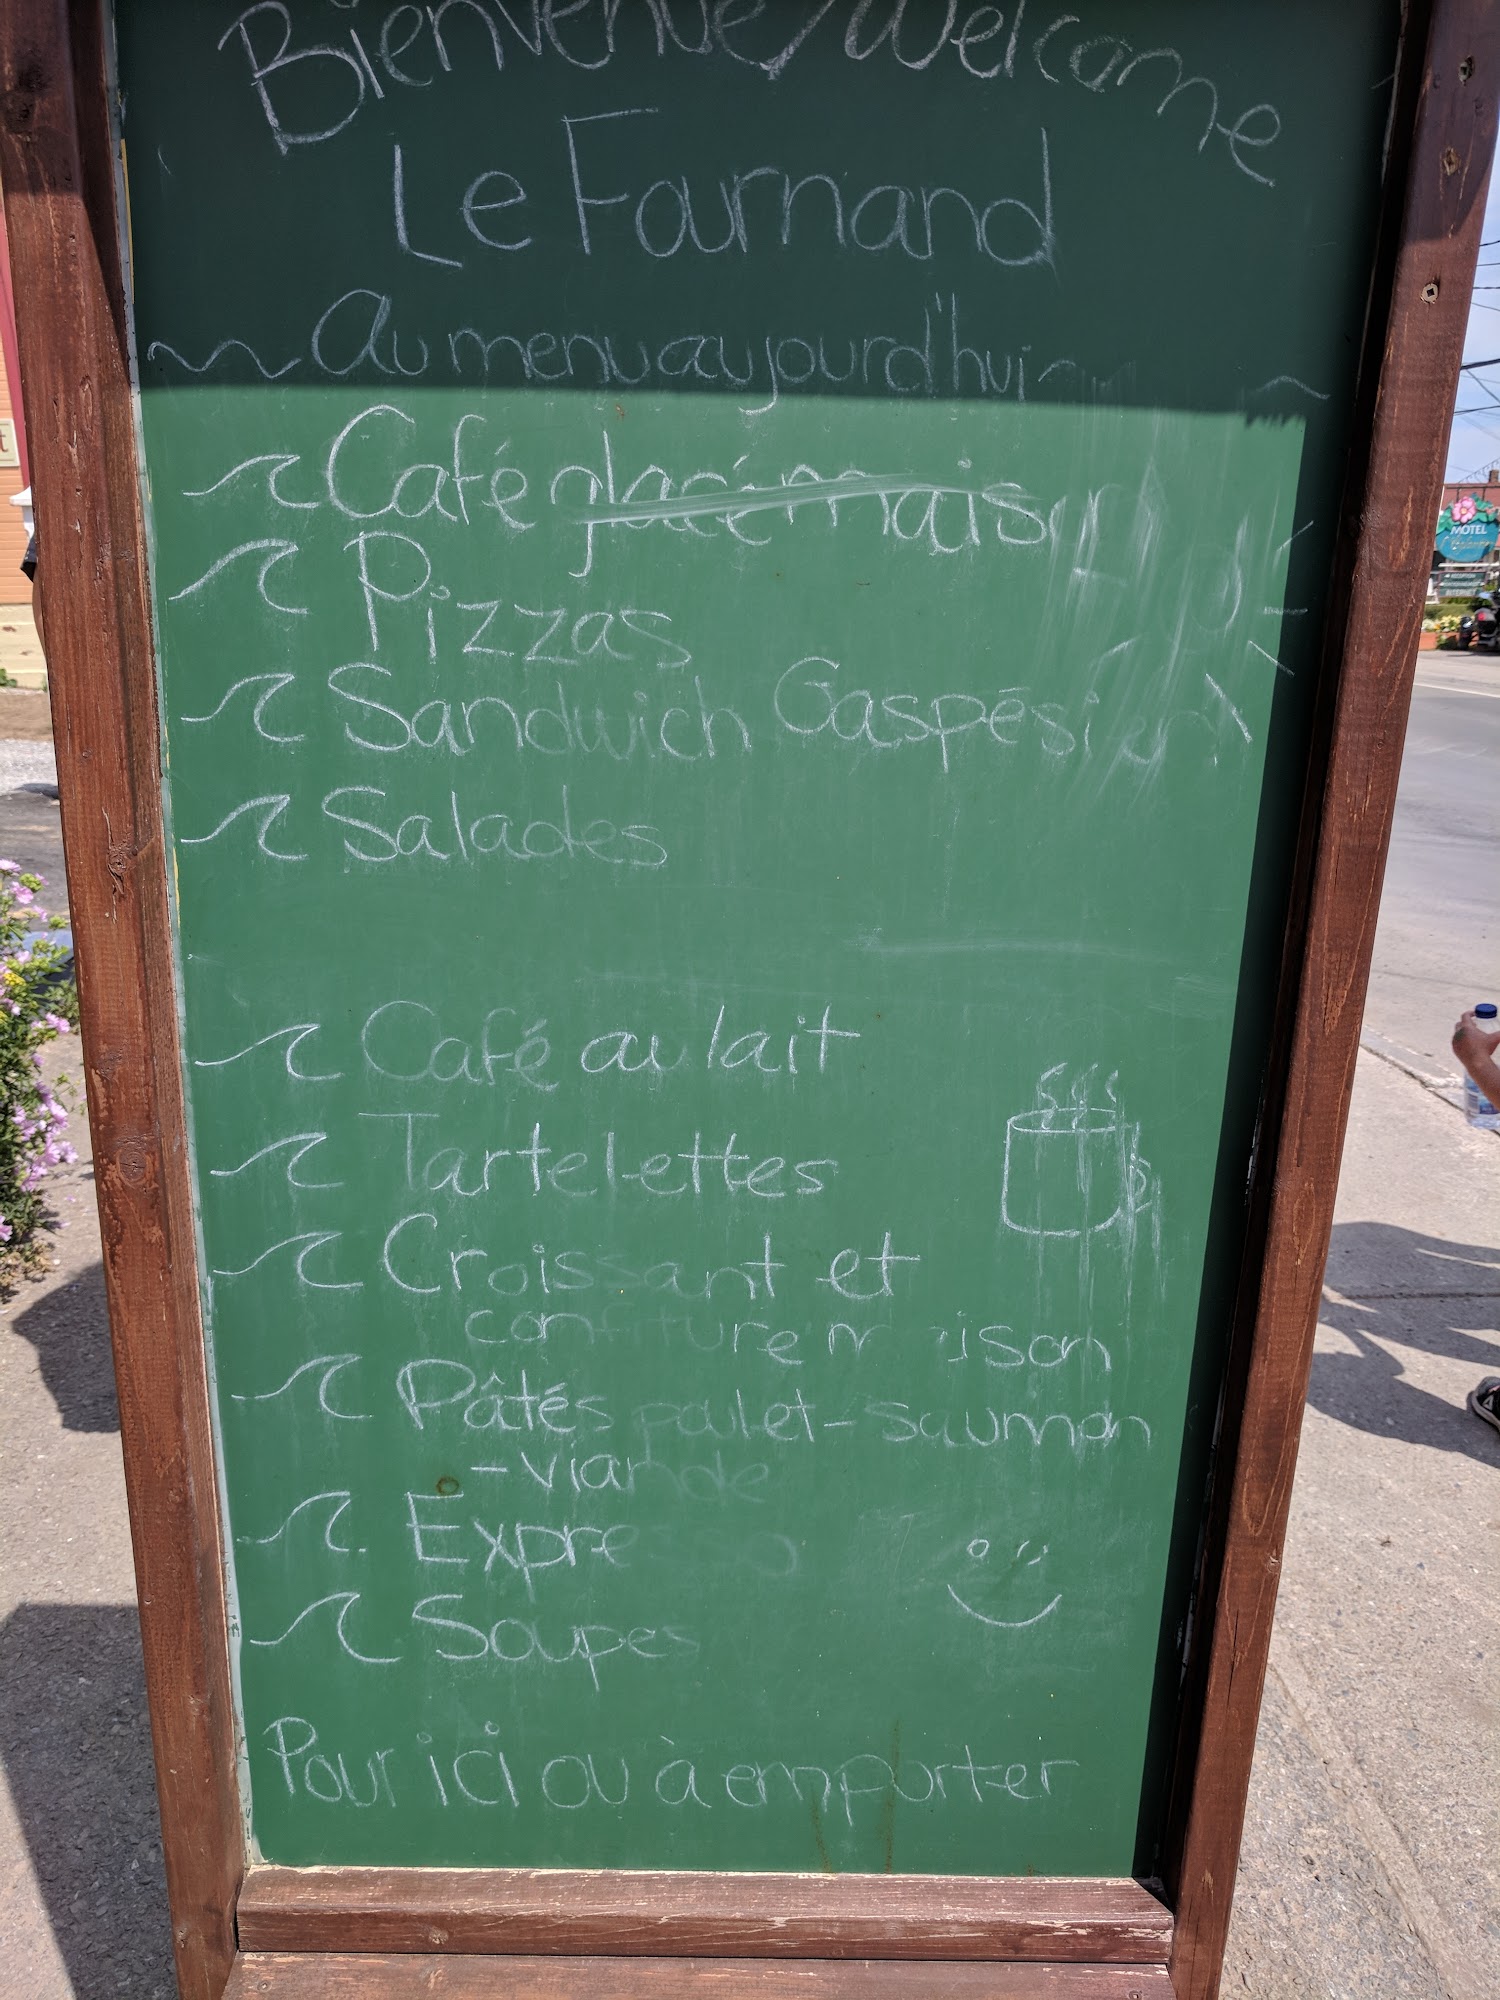 Bienvenue/Welcome
Le Fournand
Au menu aujourd'hui
Café glacé maison
Pizzas
Sandwich Gaspésien
Salades
Café au lait
Tartelettes
Croissant et
confiture maison
Pâtés poulet-saumon
-viande
Expresso
Soupes
Pour ici ou à emporter
MOTEL
t